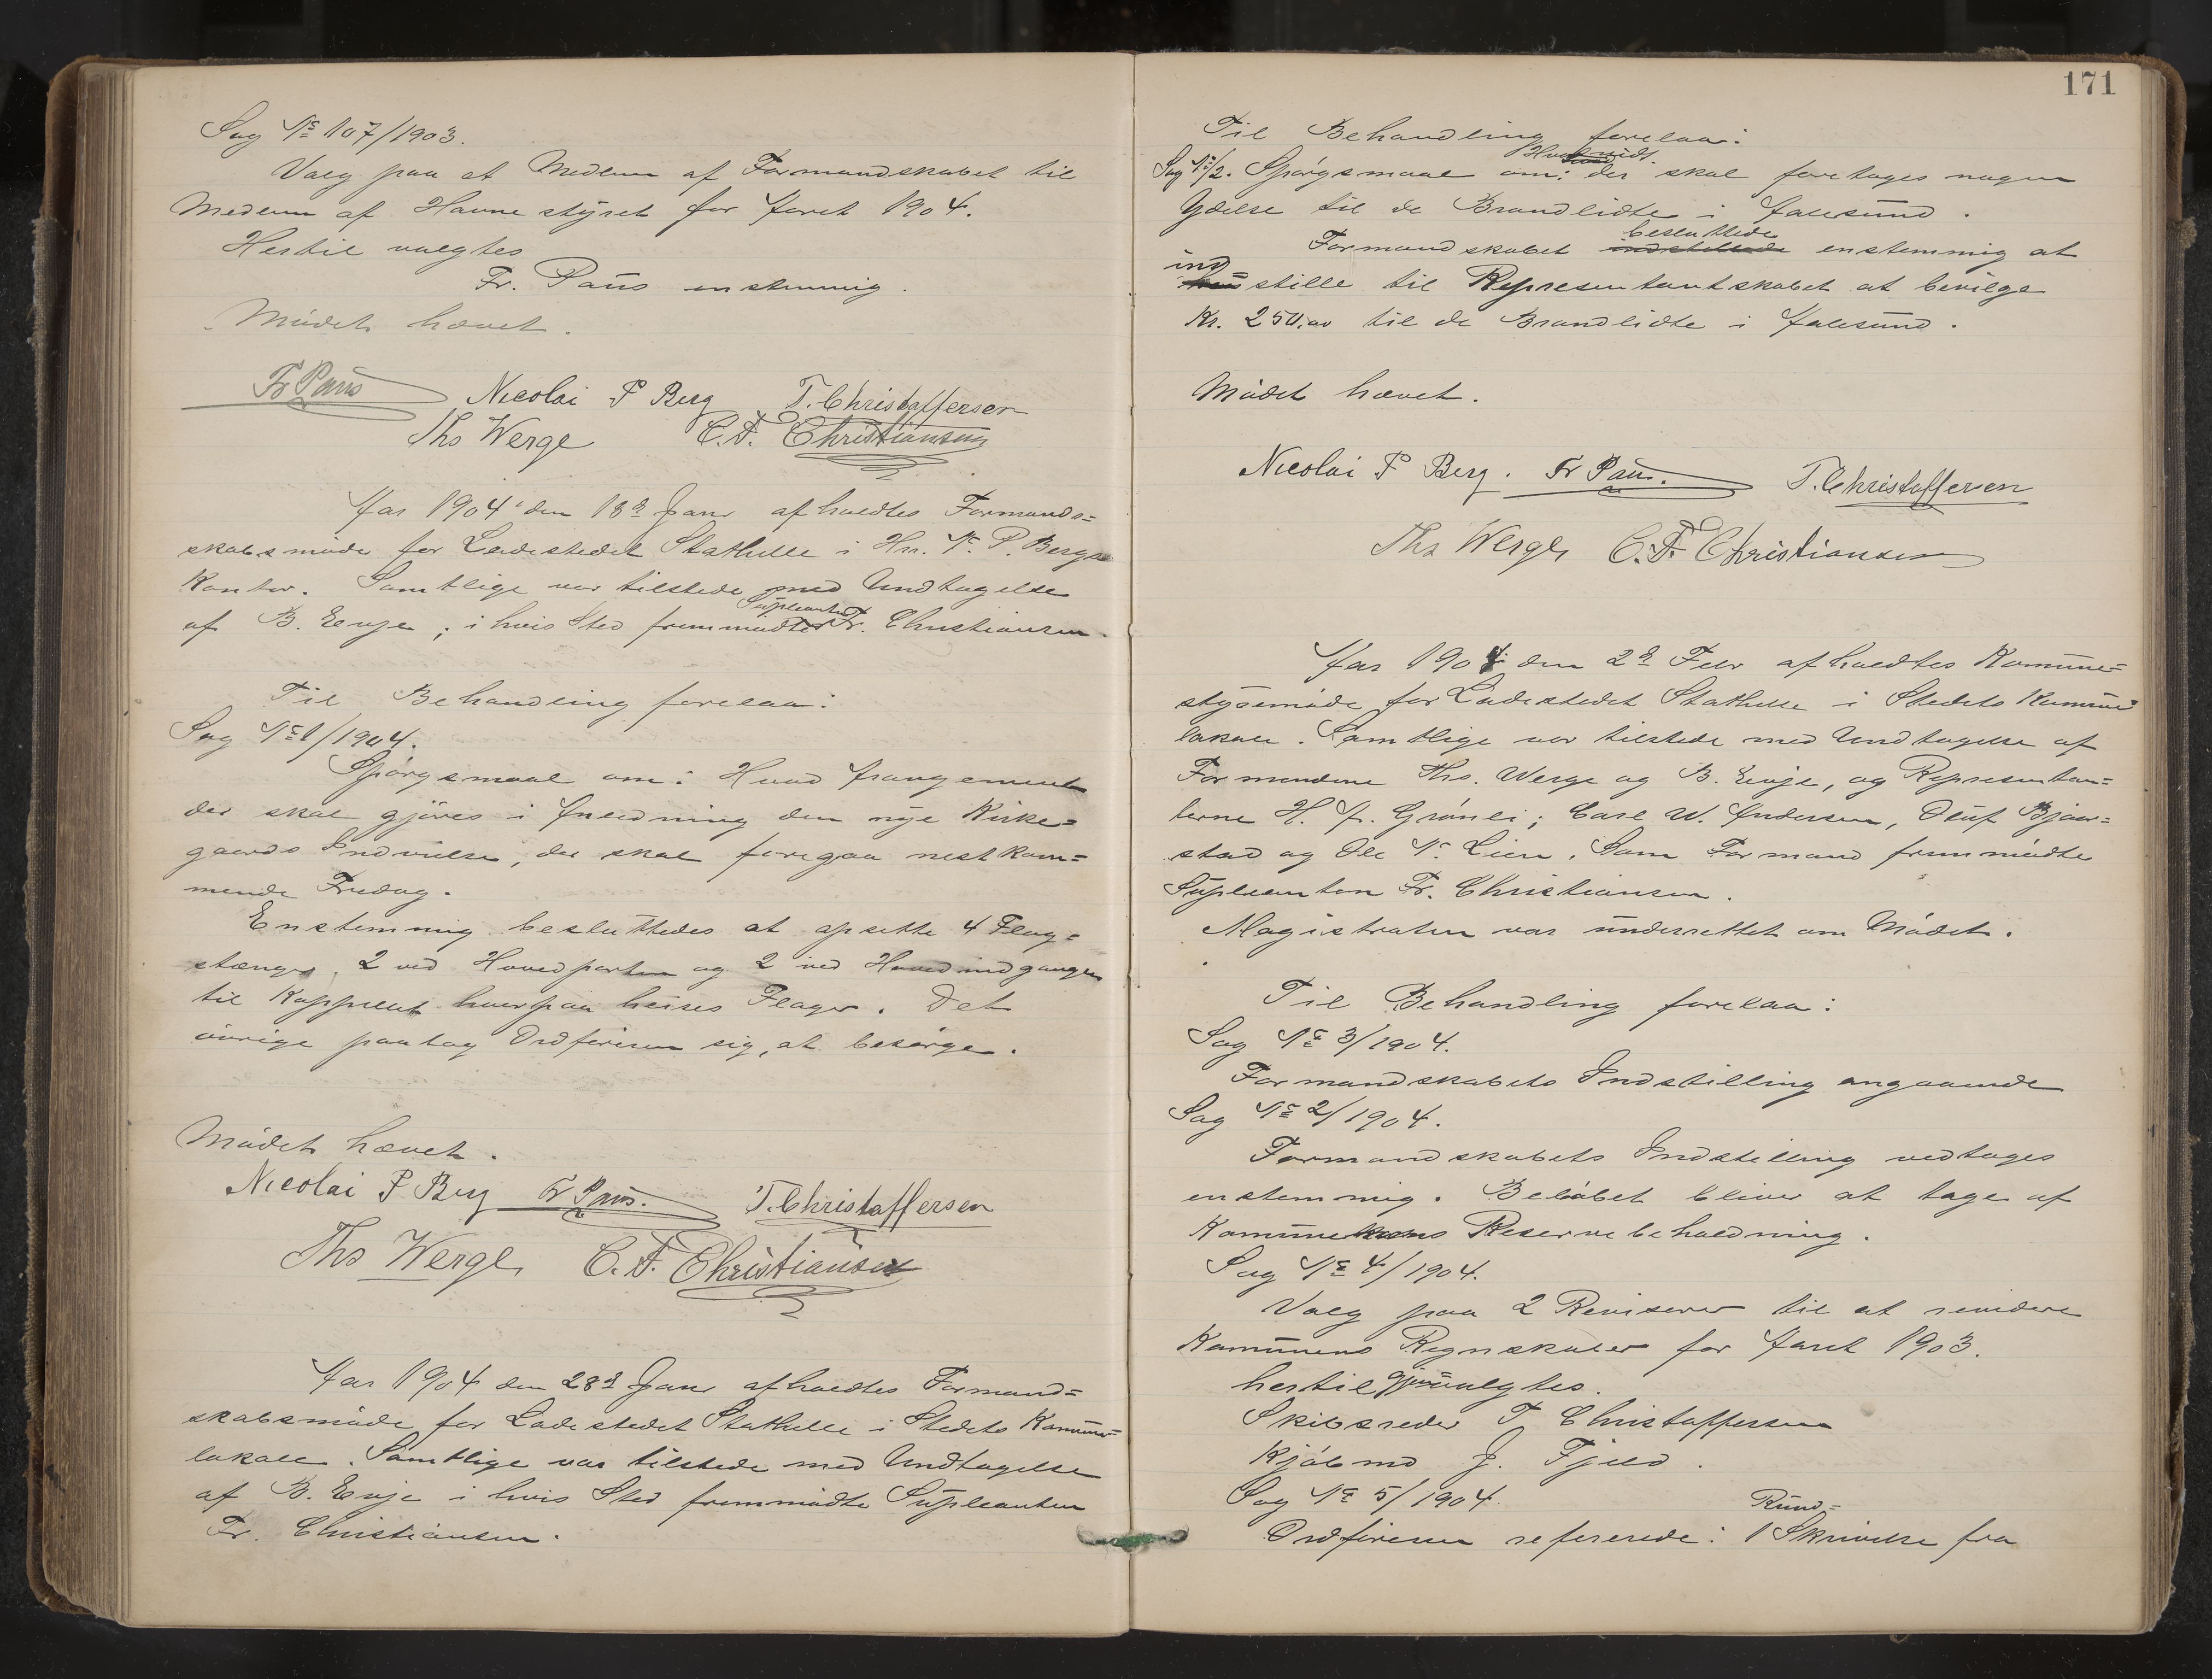 Sag No 107/1903.
Valg paa et Medlem af Formandskabet til
Medlem af Havnestyret for Aaret 1904.
Hertil valgtes
Fr. Paus enstemmig.
Mödet hævet.
Fr Paus Nicolai P Berg T. Christoffersen
Ths Werge C. F. Christiansen
Aar 1904 den 18d Janr afholdtes Formand=
skabsmöde for Ladestedet Stathelle i Hrr. N. P. Bergs
Kontor. Samtlige var tilstede med Undtagelse
af B. Eeuje, i hvis Sted fremmödte Supleanten Fr. Christiansen.
Til Behandling forelaa:
Sag No 1/1904.
Spörgsmaal om: Hvad Arangement
der skal gjöres i Anledning den nye Kirke=
gaards Indvielse, der skal foregaa nestkom=
mende Fredag.
Enstemmig besluttedes at opsette 4 Flag=
stænger, 2 ved Hovedporten og 2 ved Hovedindgangen
til Kappellet hvorpaa heises Flager. Det
övrige paatog Ordföreren sig, at besörge.
Mödet hævet.
Nicolai P Berg Fr Paus. T. Christoffersen
Ths Werge C. F. Christiansen
Aar 1904 den 28d Janr afholdtes Formand=
skabsmöde for Ladestedet Stathelle i Stedets Kommune=
lokale. Samtlige var tilstede med Undtagelse
af B. Eeuje i hvis Sted fremmödte Supleanten
Fr. Christiansen.
171
Til Behandling forelaa:
Sag No/2. Spörgsmaal om: Hvorvidt der skal foretages nogen
Ydelse til de Brandlidte i Aalesund.
Formandskabet indstillede besluttede enstemmig at
indstille til Representantskabet at bevilge
Kr. 250.00 til de Brandlidte i Aalesund.
Mödet hævet.
Nicolai P Berg. Fr Paus. T. Christoffersen
Ths Werge C. F. Christiansen
Aar 1904 den 2d Febr afholdtes Komune=
styremöde for Ladestedet Stathelle i Stedets Kommune
lokale. Samtlige var tilstede med Undtagelse af
Formendene Ths. Werge og B. Eeuje, og Representan=
terne H. A. Grönli, Carl W. Andersen, Oluf Bjaer=
stad og Ole N. Lien. Som Formand fremmödte
Supleanten Fr. Christiansen.
Magistraten var underrettet om Mödet.
Til Behandling forelaa:
Sag No 3/1904.
Formandskabets Indstilling angaaende
Sag No 2/1904.
Formandskabets Indstilling vedtages
enstemmig. Belöbet bliver at tage af
Komunekassens Reservebeholdning.
Sag No 4/1904.
Valg paa 2 Revisorer til at revidere
Kommunens Regnskaber for Aaret 1903.
hertil gjenvalgtes.
Skibsreder T Christoffersen
Kjöbmd J. Fjeld.
Sag No 5/1904.
Ordföreren refererede: 1 Rund=Skrivelse fra